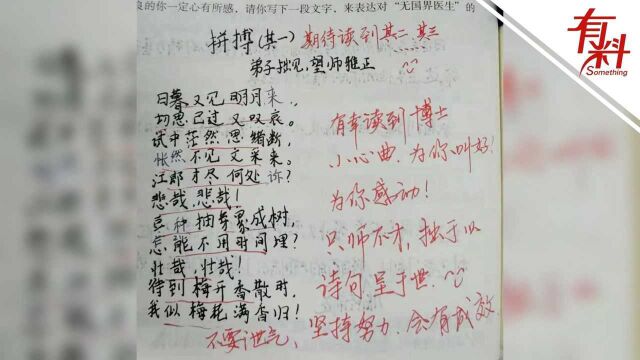 良的你一定心有所感，请你写下一段文字，来表达对“无国界医生”的
有料
Something
拼搏(其一) 期待读到其二、其三
弟子拙见 望师雅正
日暮又见明月来，
切思已过又叹哀。
试中茫然思绪断，
怅然不见文采来。
江郎才尽何处诉？
悲哉，悲哉！
种抽芽累成树，
怎能不用时间埋？
壮哉，壮哉！
待到梅开香散时，
我似梅花满香归！
有幸读到博士
小心曲，为你叫好！
为你感动！
只师不才，拙于以
诗句呈于世
不要泄气，坚持努力，会有成效